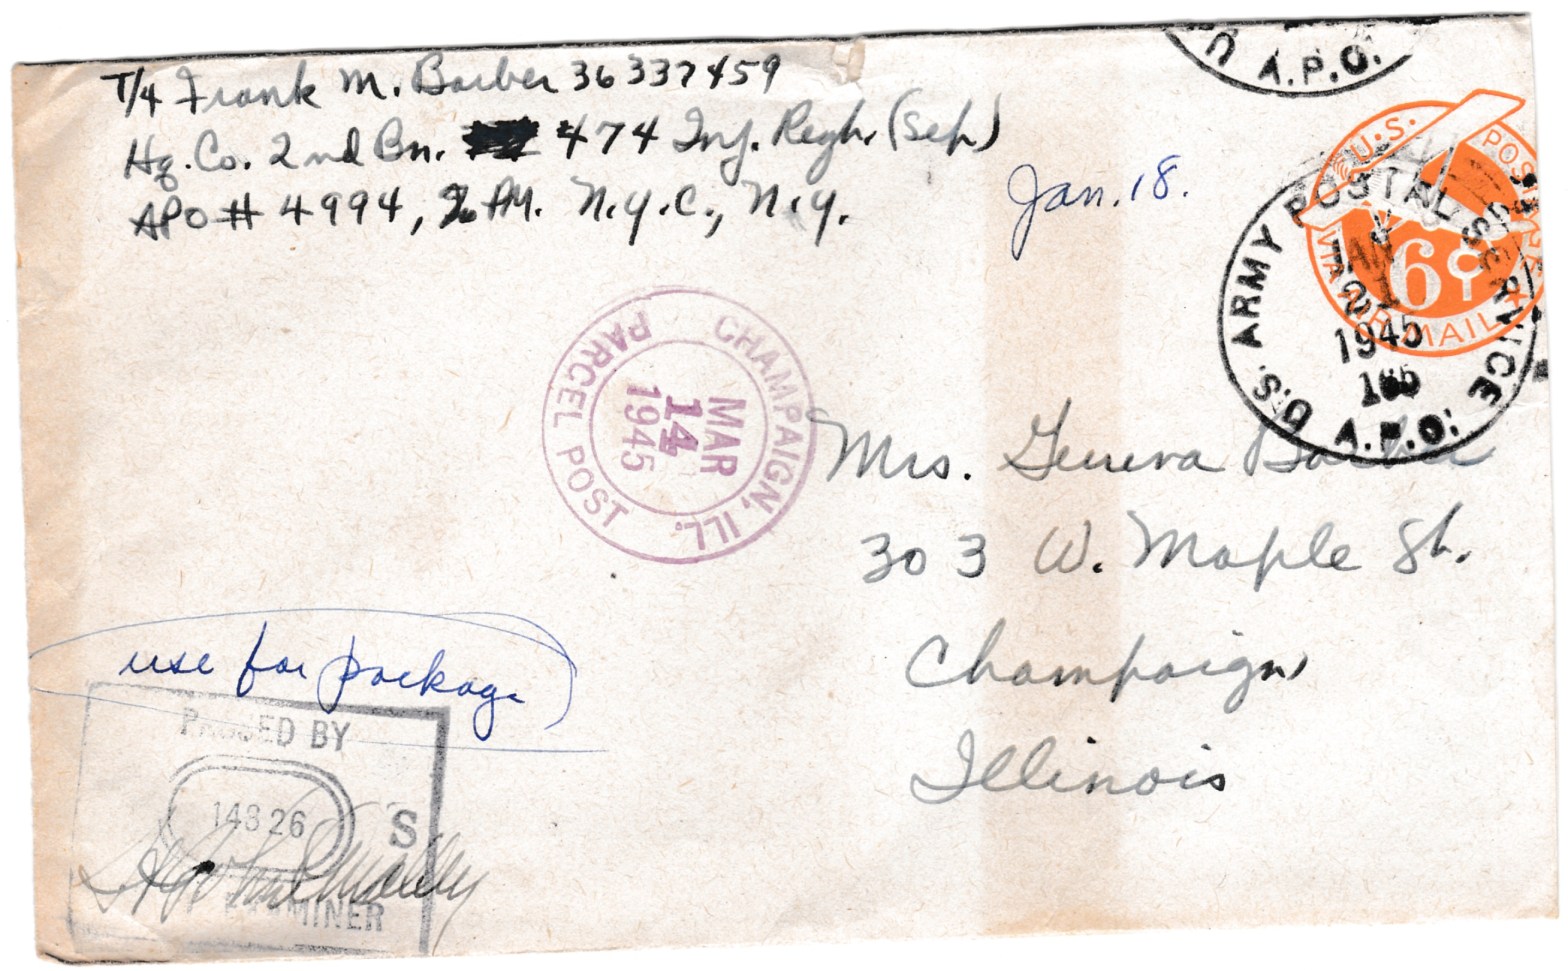 T/4 Frank M. Barber 36337459
Hq. Co. 2nd Bn. 474 Inf. Regt. (Sep)
APO # 4994, % PM. N.Y.C., N.Y.
Jan. 18.
U A.P.O.
U.S. POSTAGE
VIA AIR MAIL
6¢
U.S. ARMY POSTAL SERVICE
A.P.O.
JAN
21
1945
CHAMPAIGN, ILL.
PARCEL POST
MAR
14
1945
Mrs. Geneva Barber
303 W. Maple St.
Champaign
Illinois
use for package
PASSED BY
14826 S
EXAMINER